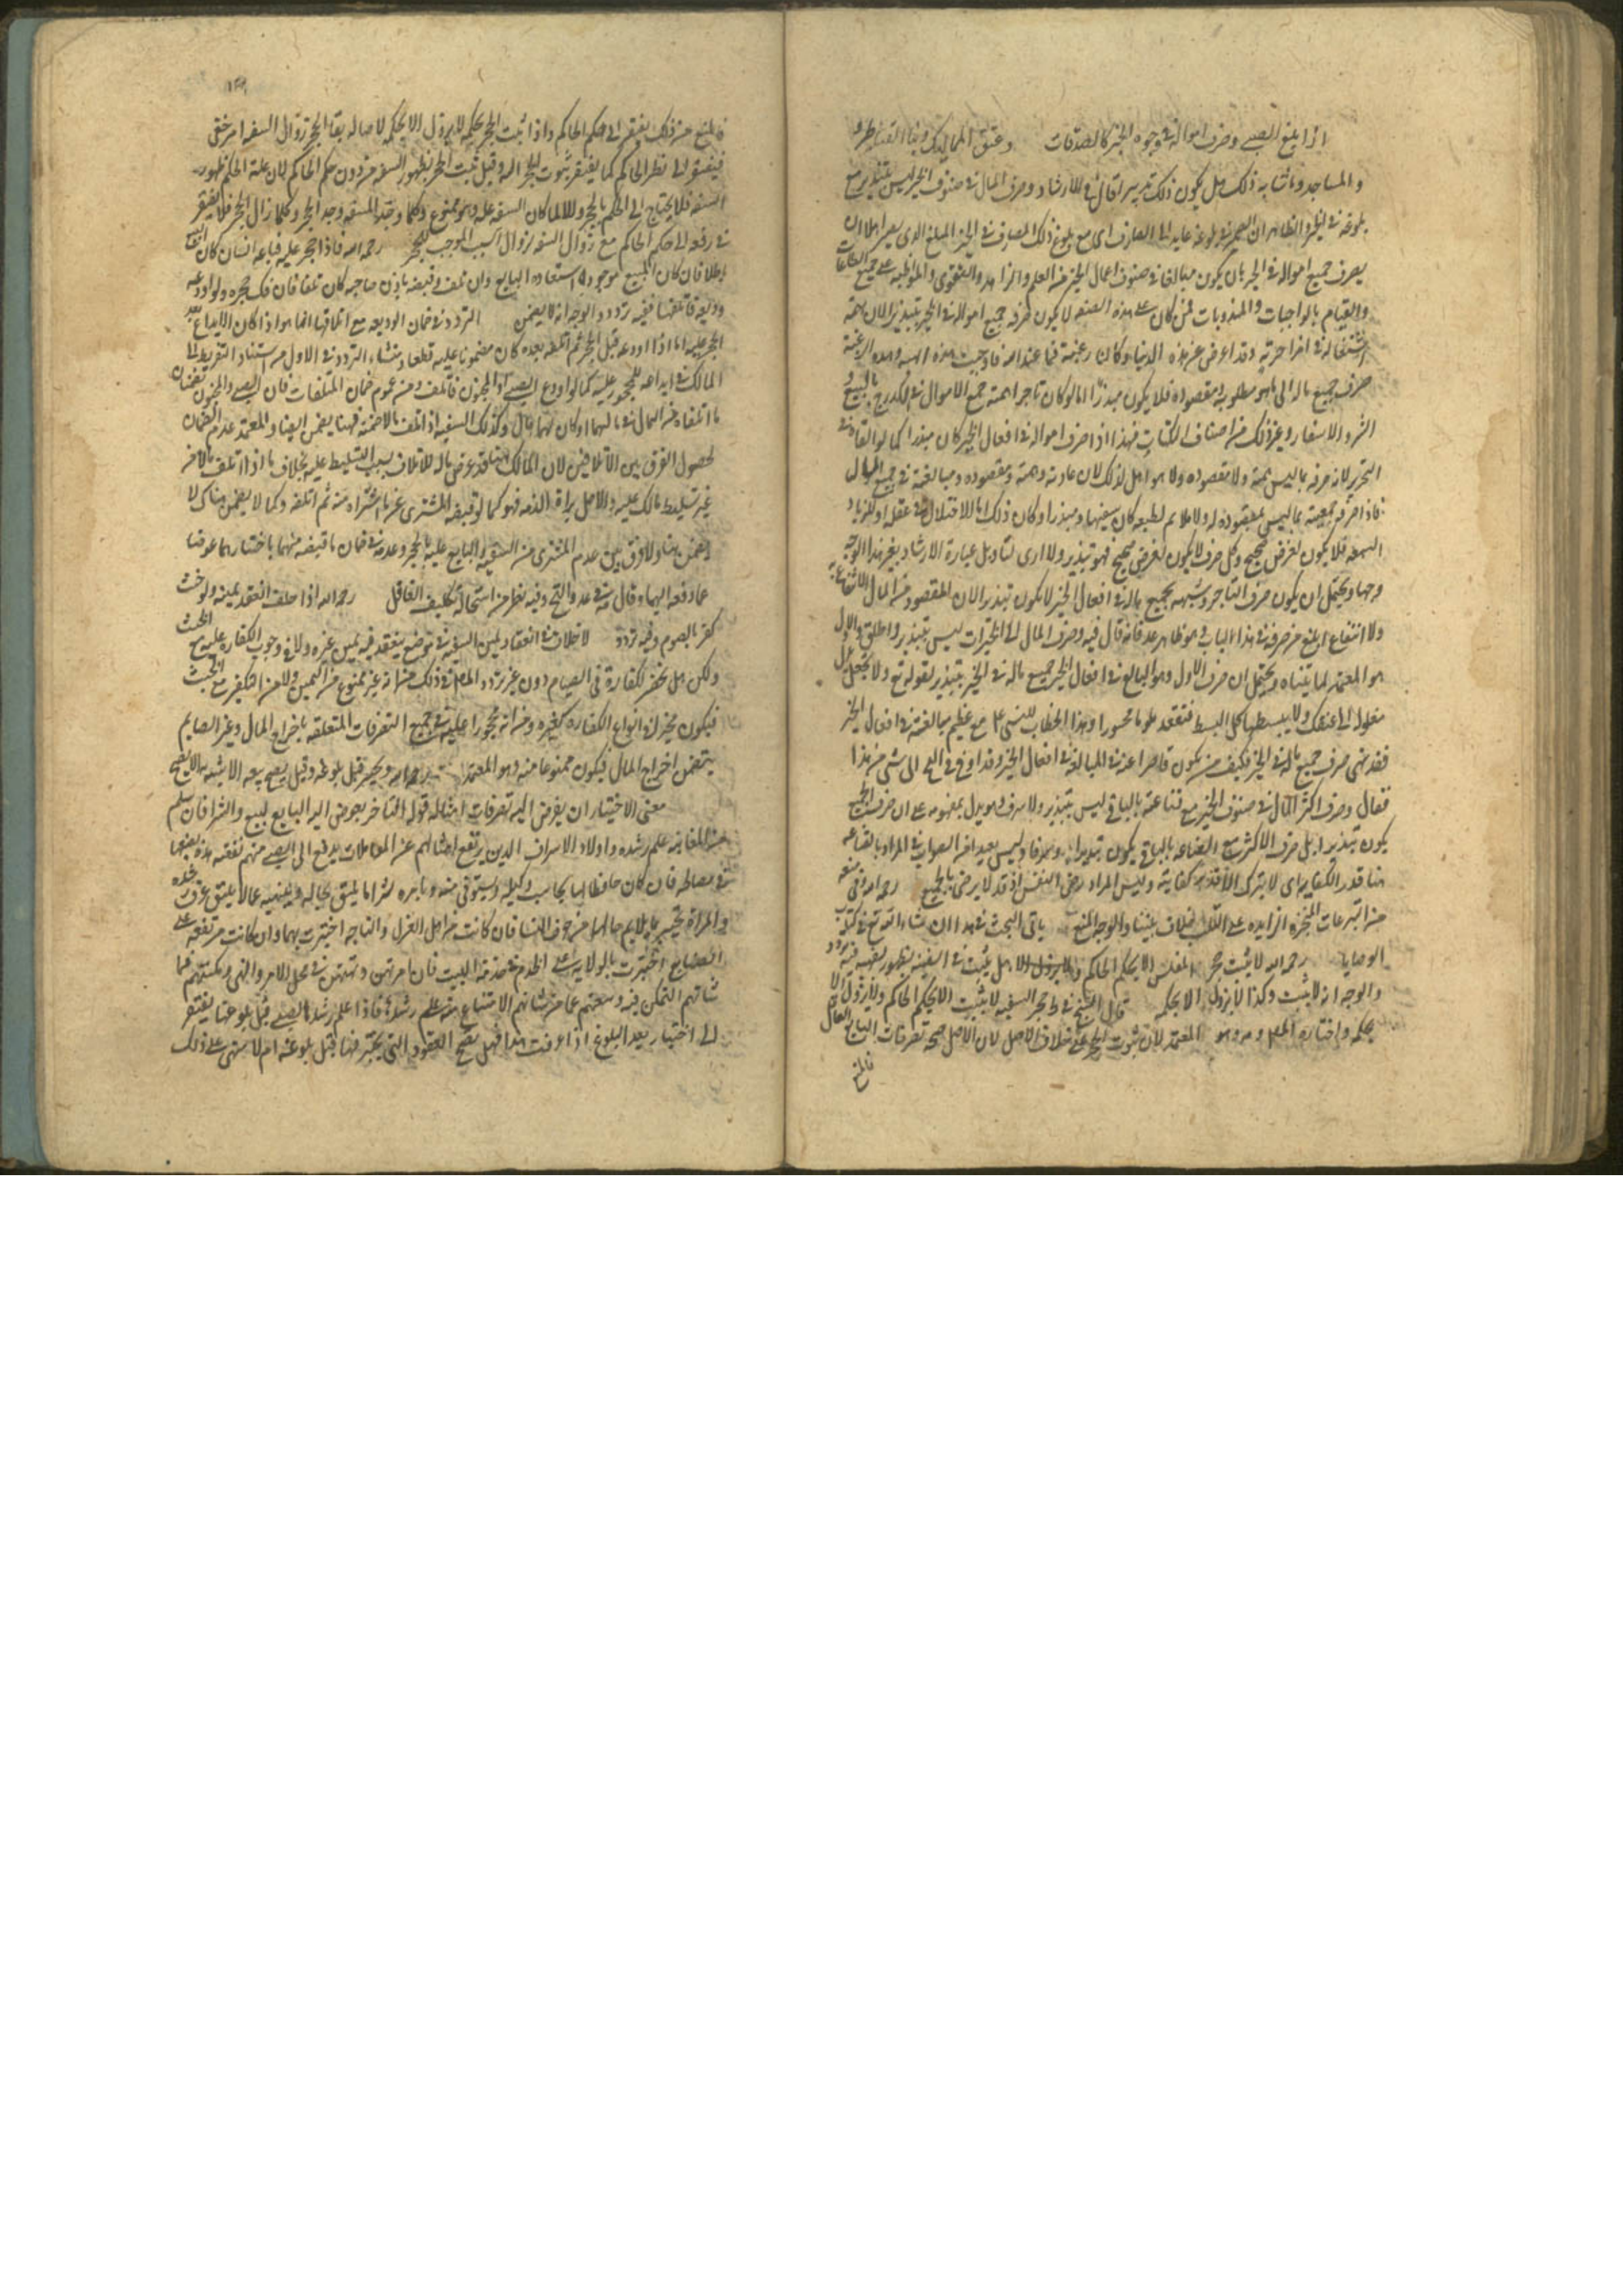 اذا بلغ الصبي وصرف امواله في وجوه الخير كالصدقات وعتق المماليك وبناء القناطر
والمساجد وما شابه ذلك هل يكون ذلك تبذيرا قال في الارشاد وصرف المال في صنوف الخير ليس بتبذير مع
بلوغه في الخير والظاهر ان الضمير في بلوغه عايد الى الصارف اي مع بلوغ ذلك الصارف في الخير المبلغ الذي يصير اهلا لان
يصرف جميع امواله في الخير بان يكون مبالغا في صنوف اعمال الخير من العلم والزهد والتقوى والمواظبة على جميع الطاعات
والقيام بالواجبات والمندوبات فمن كان على هذه الصفة لا يكون صرفه جميع امواله في الخير تبذيرا لان همته
اشتغاله في اخراجه وقد اعرض عن هذه الدنيا وكان رغبته فيما عند الله
صرف جميع ماله الى ما هو مطلوبه ومقصوده فلا يكون مبذرا اما لو كان تاجرا همته جمع الاموال بالبيع و
الشراء والاسفار وغير ذلك من اصناف الكتساب فهذا اذا صرف امواله في افعال الخير كان مبذرا كما لو القاه في
البحر لانه صرفه بما ليس همته ولا مقصوده ولا هو اهل لذلك لان عادته وهمته ومقصوده ومبالغته في جمع المال
فاذا صرف جميعه بما ليس بمقصوده له ولا ملايم لطبعه كان سفيها ومبذرا وكان ذلك اما لاختلال في عقله او لازدياد
السمعة فلا يكون لغرض صحيح وكل صرف لا يكون لغرض صحيح فهو تبذير ولا ارى لتاويل عبارة الارشاد بغير هذا الوجه
وجها ويحتمل ان يكون صرف التاجر وشبهه بجميع ماله في افعال الخير لا يكون تبذيرا لان المقصود من المال الانتفاع به
ولا انتفاع ابلغ من صرفه في هذا الباب وهو ظاهر عد فانه قال فيه وصرف المال الى الخيرات ليس بتبذير واطلق والاول
هو المعتمد لما بيناه ويحتمل ان صرف الاول وهو البالغ في افعال الخير جميع ماله في الخير تبذير لقوله تع ولا تجعل يدك
مغلولة الى عنقك ولا تبسطها كل البسط فتقعد ملوما محسورا وهذا الخطاب للنبي مع عظيم مبالغته في افعال الخير
فقد نهى صرف جميع ماله في الخير فكيف من يكون قاصرا عنه في المبالغة في افعال الخير وقد اومى في الى شي من هذا
فقال وصرف اكثر المال في صنوف الخير مع قناعته بالباقي ليس بتبذير ولا سرف وهو يدل بمفهومه على ان صرف الجميع
يكون تبذيرا بل صرف الاكثر مع القناعة بالباقي يكون تبذيرا وليس بعيدا من الصواب المراد بالقناعة
هنا قدر الكفاية اي لا يترك الا قدر كفايته وليس المراد رضى النفس اذ قد لا يرضى بالجميع رحمه الله وفي منعه
من التبرعات المنجزة الزايده على الثلث خلاف بيننا والوجه المنع ياتي البحث في هذا ان شاء الله تع في كتاب
الوصايا رحمه الله لا يثبت حجر المفلس الا بحكم الحاكم وهل يثبت في السفيه بظهور سفهه فيه تردد
والوجه انه لا يثبت وكذا لا يزول الا بحكمه قال الشيخ في ط حجر السفيه لا يثبت الا بحكم الحاكم ولا يزول الا
بحكمه واختاره وهو المعتمد لان ثبوت الحجر على خلاف الاصل لان الاصل صحة تصرفات البالغ العاقل
فالمنع
فالمنع من ذلك يفتقر الى حكم الحاكم واذا ثبت الحجر بحكمه لا يزول الا بحكمه لاصالة بقاء الحجر وزوال السفه امر خفي
فيفتقر الى نظر الحاكم كما يفتقر ثبوت الحجر اليه وقيل يثبت الحجر بظهور السفه من دون حكم الحاكم لان علة الحكم ظهور
السفه فلا يحتاج الى الحكم بالحجر وكلما وجد السفه وجد الحجر وكلما زال الحجر فلا يفتقر
في رفعه الى حكم الحاكم مع زوال السفه لزوال السبب الموجب للحجر رحمه الله فاذا حجر عليه فبايعه انسان كان البيع
باطلا فان كان المبيع موجودا استعاده البايع وان تلف وقبضه باذن صاحبه كان تلفا فان فك حجره ولو اودعه
وديعة فاتلفها ففيه تردد والوجه انه لا يضمن التردد في ضمان الوديعه مع اتلافها انما هو اذا كان الايداع بعد
الحجر عليه اما اذا اودعه قبل الحجر ثم اتلفه بعده كان مضمونا عليه قطعا ومنشاء التردد في الاول من استناد التفريط الى
المالك في ايداعه للمحجور عليه كما لو اودع الصبي او المجنون فاتلف ومن عموم ضمان المتلفات فان الصبي والمجنون يضمنان
ما اتلفاه من المال في مالهما ان كان لهما مال وكذلك السفيه اذا اتلف مالا ضمنه فهنا يضمن ايضا والمعتمد عدم الضمان
لحصول الفرق بين الاتلافين لان المالك هنا قد عرض ماله للاتلاف بسبب التسليط عليه بخلاف ما اذا اتلف مالا من
غير تسليط مالكه عليه والاصل براءة الذمه فهو كما لو قبضه المشترى غير ما اشتراه منه ثم اتلفه وكما لا يضمن هناك لا
يضمن هنا ولا فرق بين عدم المشترى من السفيه والبايع عليه بالحجر وعدمه في ضمان ما قبضه منهما باختيارهما عوضا
عما دفعه اليهما وقال في عد والتح وفيه نظر من استحالة تكليف الغافل رحمه الله اذا حلف انعقد يمينه ولو حنث
كفر بالصوم وفيه تردد لا خلاف في انعقاد يمين السفيه في موضع ينعقد فيه يمين غيره ولا في وجوب الكفاره عليه مع الحنث
ولكن هل تنحصر الكفارة في الصيام دون غيره تردد المص في ذلك من انه غير ممنوع من اليمين ولا من التكفير مع الحنث
فيكون مخيرا في انواع الكفاره كغيره ومن انه محجورا عليه في جميع التصرفات المتعلقه باخراج المال وغير الصيام
يتضمن اخراج المال فيكون ممنوعا منه وهو المعتمد رحمه الله ويختبر قبل بلوغه وقيل يصح بيعه الاشبه انه لا يصح
معنى الاختبار ان يفوض اليه تصرفات امثاله فولد التاجر يفوض اليه البايع للبيع والشراء فان سلم
من المغابنه علم رشده واولاد الاشراف الذين يرتفع امثالهم عن المعاملات يدفع الى الصبي منهم نفقة مده يصرفها
في مصالحه فان كان حافظا لها يحاسب وكيله ويستوفي منه ويامره بشراء ما يليق بحاله وينهيه عما لا يليق عرف رشده
والمراة تختبر بما يلايم حالها من حرف النساء فان كانت من اهل الغزل والنساجه اختبرت بهما وان كانت مرتفعه عن
الصنايع اختبرت بالولاية على الخدم في خدمة البيت فان امرتهن ونهتهن في محل الامر والنهي ومكنتهم فيما
شانهم التمكن فيه ومنعتهم عما من شانهم الامتناع منه علم رشدها فاذا علم رشد الصبي قبل بلوغه لا يفتقر
الى اختبار بعد البلوغ اذا عرفت هذا فهل يصح العقود التي يختبر فيها قبل بلوغه ام لا مبنى على ذلك